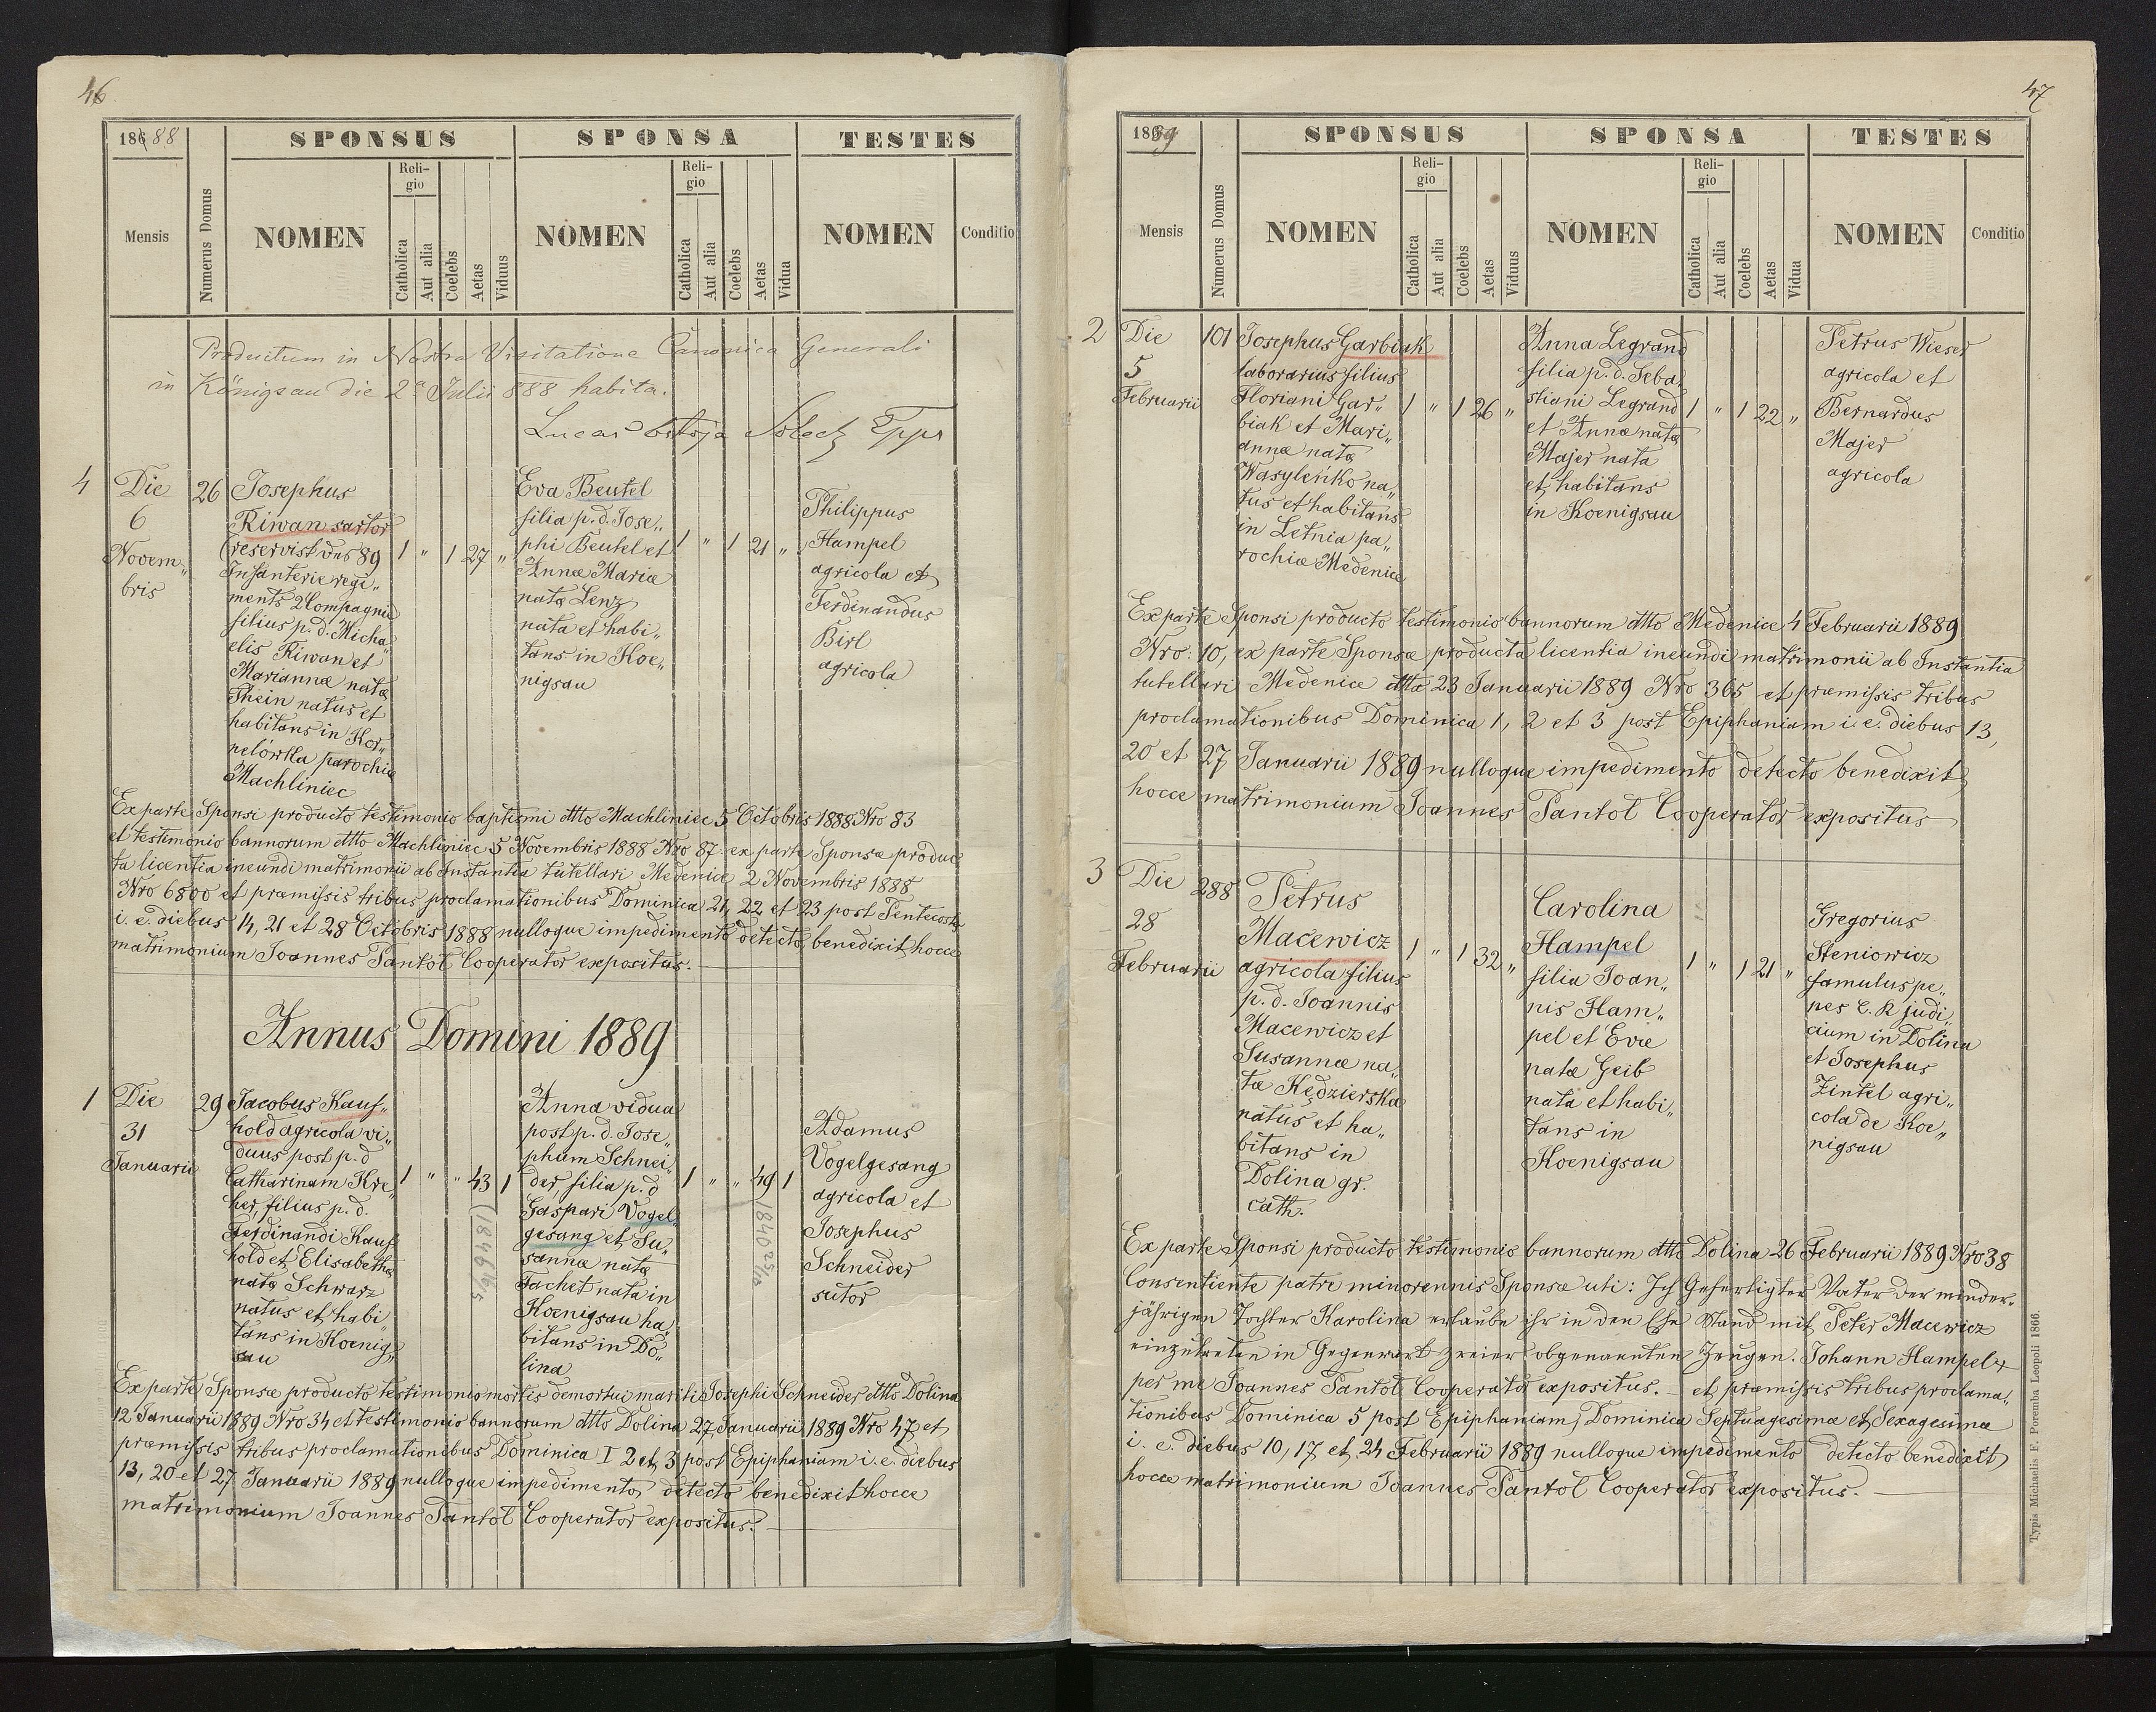 46
18688
SPONSUS
SPONSA
TESTES
Mensis
Numerus Domus
NOMEN
Reli-
gio
Catholica
Aut alia
Coelebs
Aetas
Viduus
NOMEN
Reli-
gio
Catholica
Aut alia
Coelebs
Aetas
Vidua
NOMEN
Conditio
Productum in Nostra Visitatione Canonica Generali
in Königsau die 2a Julii 888 habita.
Lucas Solecki Eppr
4
Die
6
Novem„
bris
26
Josephus
Riwan sartor
(reservist des 89
Infanterie regi„
ments 2 Compagnie
filius p. d. Micha„
elis Riwan et
Mariannæ natæ
Thein natus et
habitans in Kor„
nelówka parochiæ
Machliniec
1 „ 1 27 „
Eva Beutel
filia p. d. Jose„
phi Beutel et
Annæ Mariæ
natæ Lenz
nata et habi„
tans in Koe„
nigsau
1 „ 1 21 „
Philippus
Hampel
agricola et
Ferdinandus
Birl
agricola
Ex parte Sponsi producto testimonio baptismi dtto Machliniec 5 Octobris 1888 Nro 83
et testimonio bannorum dtto Machliniec 5 Novembris 1888 Nro 87. ex parte Sponsæ produc„
ta licentia ineundi matrimonii ab Instantia tutellari Medenice 2 Novembris 1888
Nro 6800 et præmissis tribus proclamationibus Dominica 21, 22 et 23 post Pentecosta
i. e. diebus 14, 21 et 28 Octobris 1888 nulloque impedimento detecto, benedixit hocce
matrimonium Joannes Pantoł Cooperator expositus.
Annus Domini 1889
1
Die
31
Januarii
29
Jacobus Kauf„
hold agricola vi„
duus post p. d
Catharinam Kre„
her, filius p. d.
Ferdinandi Kauf„
hold et Elisabethæ
natæ Schwarz
natus et habi„
tans in Koenig„
sau
1 „ „ 43 1
(1846
Anna vidua
post p. d. Jose„
phum Schnei„
der, filia p. d
Gaspari Vogel„
gesang et Su„
sannæ natæ
Tachet nata in
Koenigsau ha„
bitans in Do„
lina
1 „ „ 49 1
1840
Adamus
Vogelgesang
agricola et
Josephus
Schneider
sutor
Ex parte Sponsæ producto testimonio mortis demortui mariti Josephi Schneider dtto Dolina
12 Januarii 1889 Nro 34 et testimonio bannorum dtto Dolina 27 Januarii 1889 Nro 47 et
præmissis tribus proclamationibus Dominica I 2 et 3 post Epiphaniam i. e. diebus
13, 20 et 27 Januarii 1889 nulloque impedimento detecto benedixit hocce
matrimonium Joannes Pantoł Cooperator expositus.
47
1889
SPONSUS
SPONSA
TESTES
Mensis
Numerus Domus
NOMEN
Reli-
gio
Catholica
Aut alia
Coelebs
Aetas
Viduus
NOMEN
Reli-
gio
Catholica
Aut alia
Coelebs
Aetas
Vidua
NOMEN
Conditio
2
Die
5
Februarii
101
Josephus Garbiak
laborarius filius
Floriani Gar„
biak et Mari„
annæ natæ
Wasyleńko na„
tus et habitans
in Letnia pa„
rochiæ Medenice
1 „ 1 26 „
Anna Legrand
filia p. d. Seba„
stiani Legrand
et Annæ natæ
Majer nata
et habitans
in Koenigsau
1 „ 1 22 „
Petrus Wieser
agricola et
Bernardus
Majer
agricola
Ex parte Sponsi producto testimonio bannorum dtto Medenice 4 Februarii 1889
Nro: 10, ex parte Sponsæ producta licentia ineundi matrimonii ab Instantia
tutellari Medenice dtta 23 Januarii 1889 Nro 365 et præmissis tribus
proclamationibus Dominica 1, 2 et 3 post Epiphaniam i. e. diebus 13,
20 et 27 Januarii 1889 nulloque impedimento detecto benedixit
hocce matrimonium Joannes Pantoł Cooperator expositus
3
Die
28
Februarii
288
Petrus
Macewicz
agricola filius
p. d. Joannis
Macewicz et
Susannæ na„
tæ Kędzierska
natus et ha„
bitans in
Dolina gr.
cath.
1 „ 1 32 „
Carolina
Hampel
filia Joan„
nis Ham„
pel et Evæ
natæ Geib
nata et habi„
tans in
Koenigsau
1 „ 1 21 „
Gregorius
Steniowicz
famulus pe„
nes C. k judi„
cium in Dolina
et Josephus
Zintel agri„
cola de Koe„
nigsau
Ex parte Sponsi producto testimonio bannorum dtto Dolina 26 Februarii 1889 Nro 38
Consentiente patre minorennis Sponsæ uti: Ich Gefertigter Vater der minder„
jährigen Tochter Karolina erlaube ihr in den Ehe Stand mit Peter Macewicz
einzutreten in Gegenwart zweier obgenannten Zeugen. Johann Hampel +
per me Joannes Pantoł Cooperator expositus. — et præmissis tribus proclama„
tionibus Dominica 5 post Epiphaniam, Dominica Septuagesima et Sexagesima
i. e. diebus 10, 17 et 24 Februarii 1889 nulloque impedimento detecto benedixit
hocce matrimonium Joannes Pantoł Cooperator expositus.
Typis Michaelis F. Poremba Leopoli 1866.